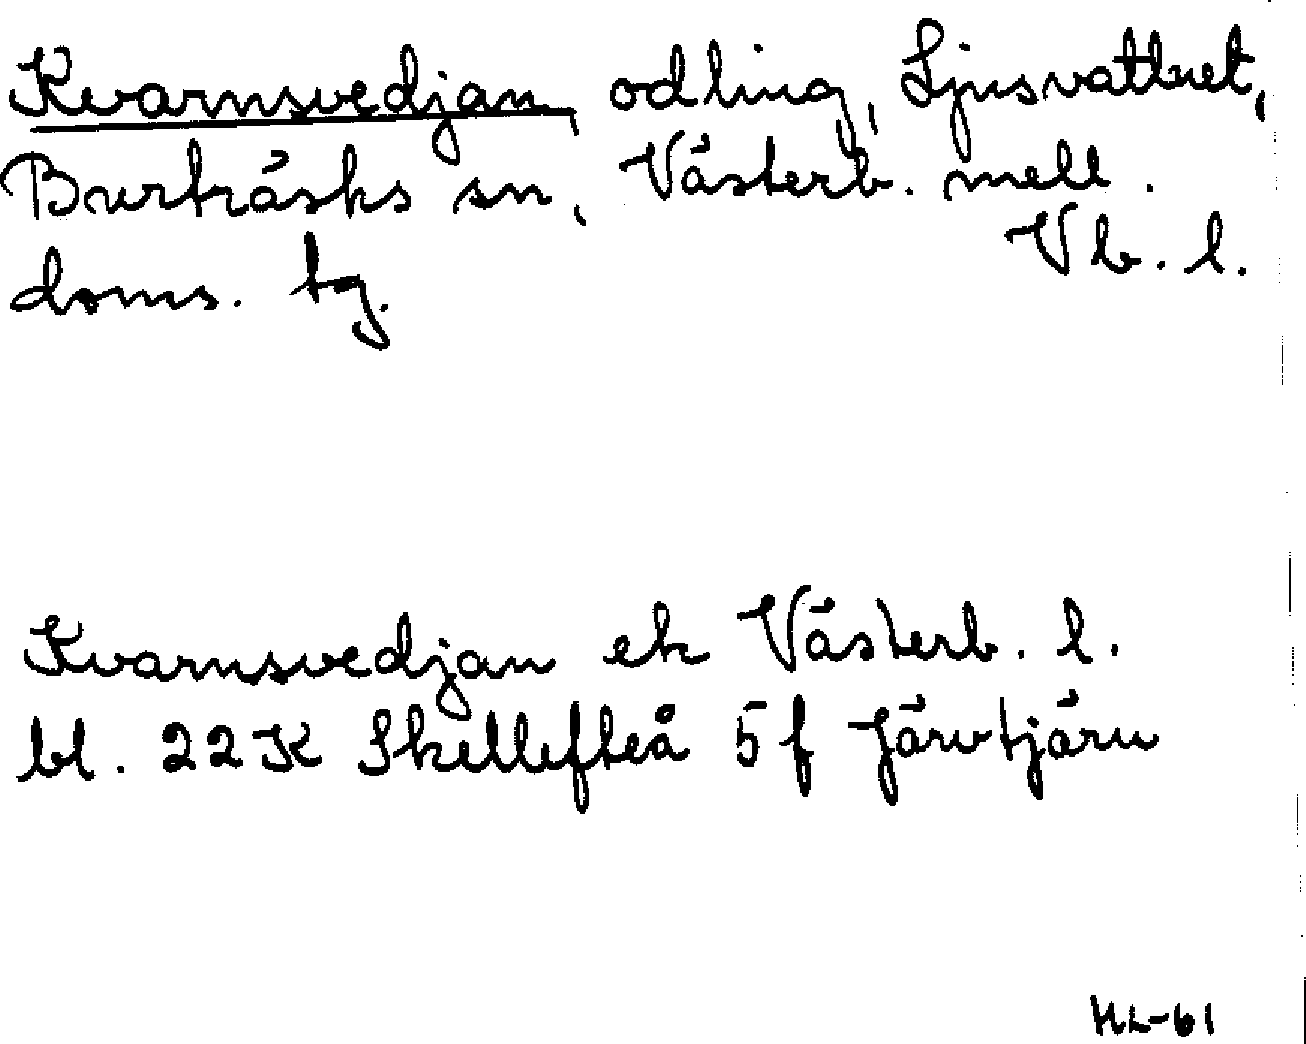 Kvarnsvedjan, odling, Ljusvattnet,
Burträsks sn, Västerb. mell.
doms. tg. Vb. l.
Kvarnsvedjan ek Västerb. l.
bl. 22K Skellefteå 5f Järvtjärn
HL-61